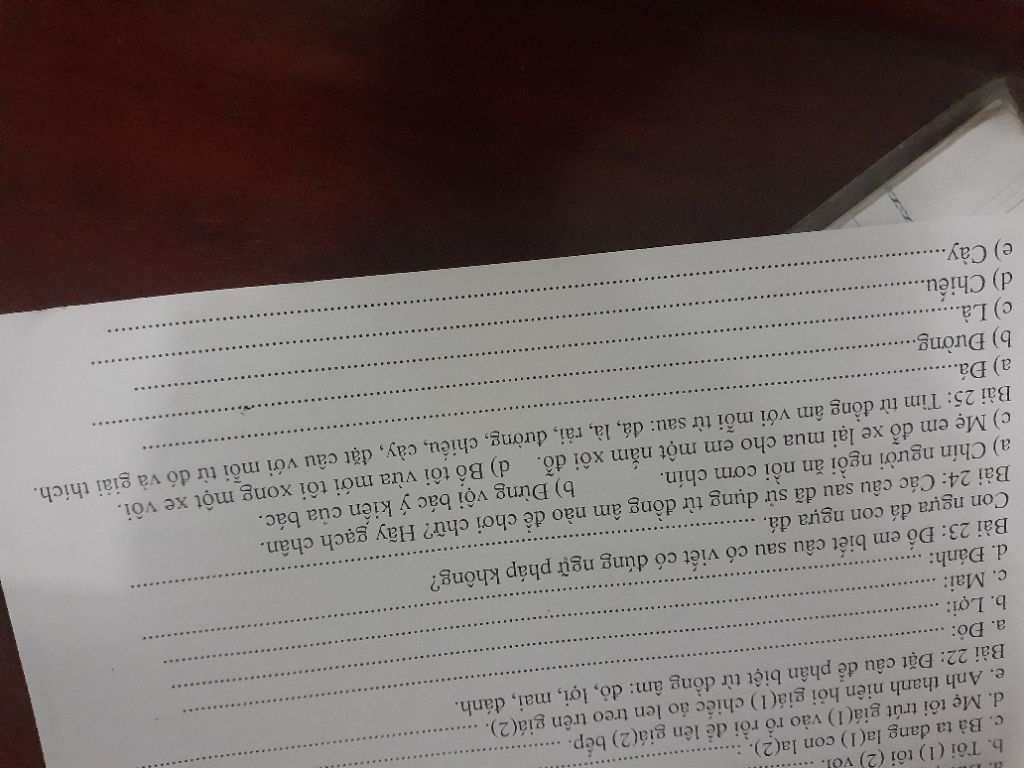 b. Tôi (1) tôi (2) vôi. ....................
c. Bà ta đang la(1) con la(2). ....................
d. Mẹ tôi trút giá(1) vào rổ rồi để lên giá(2) bếp. ....................
e. Anh thanh niên hỏi giá(1) chiếc áo len treo trên giá(2). ....................
Bài 22: Đặt câu để phân biệt từ đồng âm: đỏ, lợi, mai, đánh.
a. Đỏ: ....................
b. Lợi: ....................
c. Mai: ....................
d. Đánh: ....................
Bài 23: Đố em biết câu sau có viết có đúng ngữ pháp không?
Con ngựa đá con ngựa đá. ....................
Bài 24: Các câu sau đã sử dụng từ đồng âm nào để chơi chữ? Hãy gạch chân.
a) Chín người ngồi ăn nồi cơm chín. b) Đừng vội bác ý kiến của bác.
c) Mẹ em đỗ xe lại mua cho em một nắm xôi đỗ. d) Bố tôi vừa mới tôi xong một xe vôi.
Bài 25: Tìm từ đồng âm với mỗi từ sau: đá, là, rải, đường, chiếu, cày, đặt câu với mỗi từ đó và giải thích.
a) Đá....................
b) Đường....................
c) Là....................
d) Chiếu....................
e) Cày....................